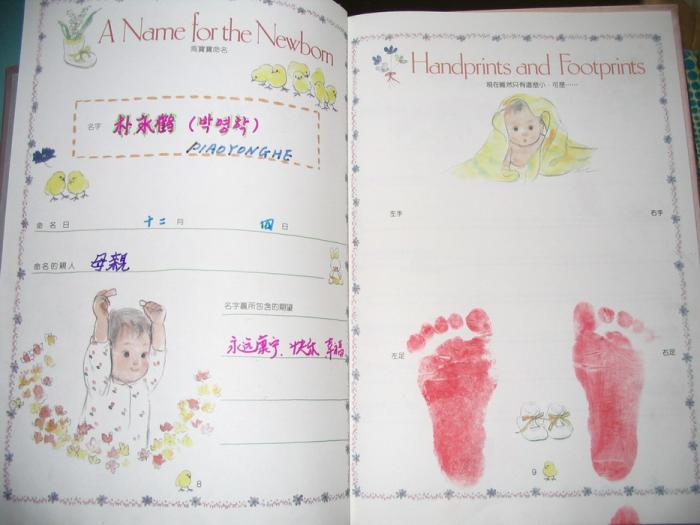 A Name for the Newborn
為寶寶命名
名字 朴永鶴 (박영학)
PIAOYONGHE
命名日 十二月 四日
命名的親人 母親
名字裏所包含的期望
永远康宁、快乐 幸福
8
Handprints and Footprints
現在雖然只有這麼小，可是……
左手 右手
左足 右足
9